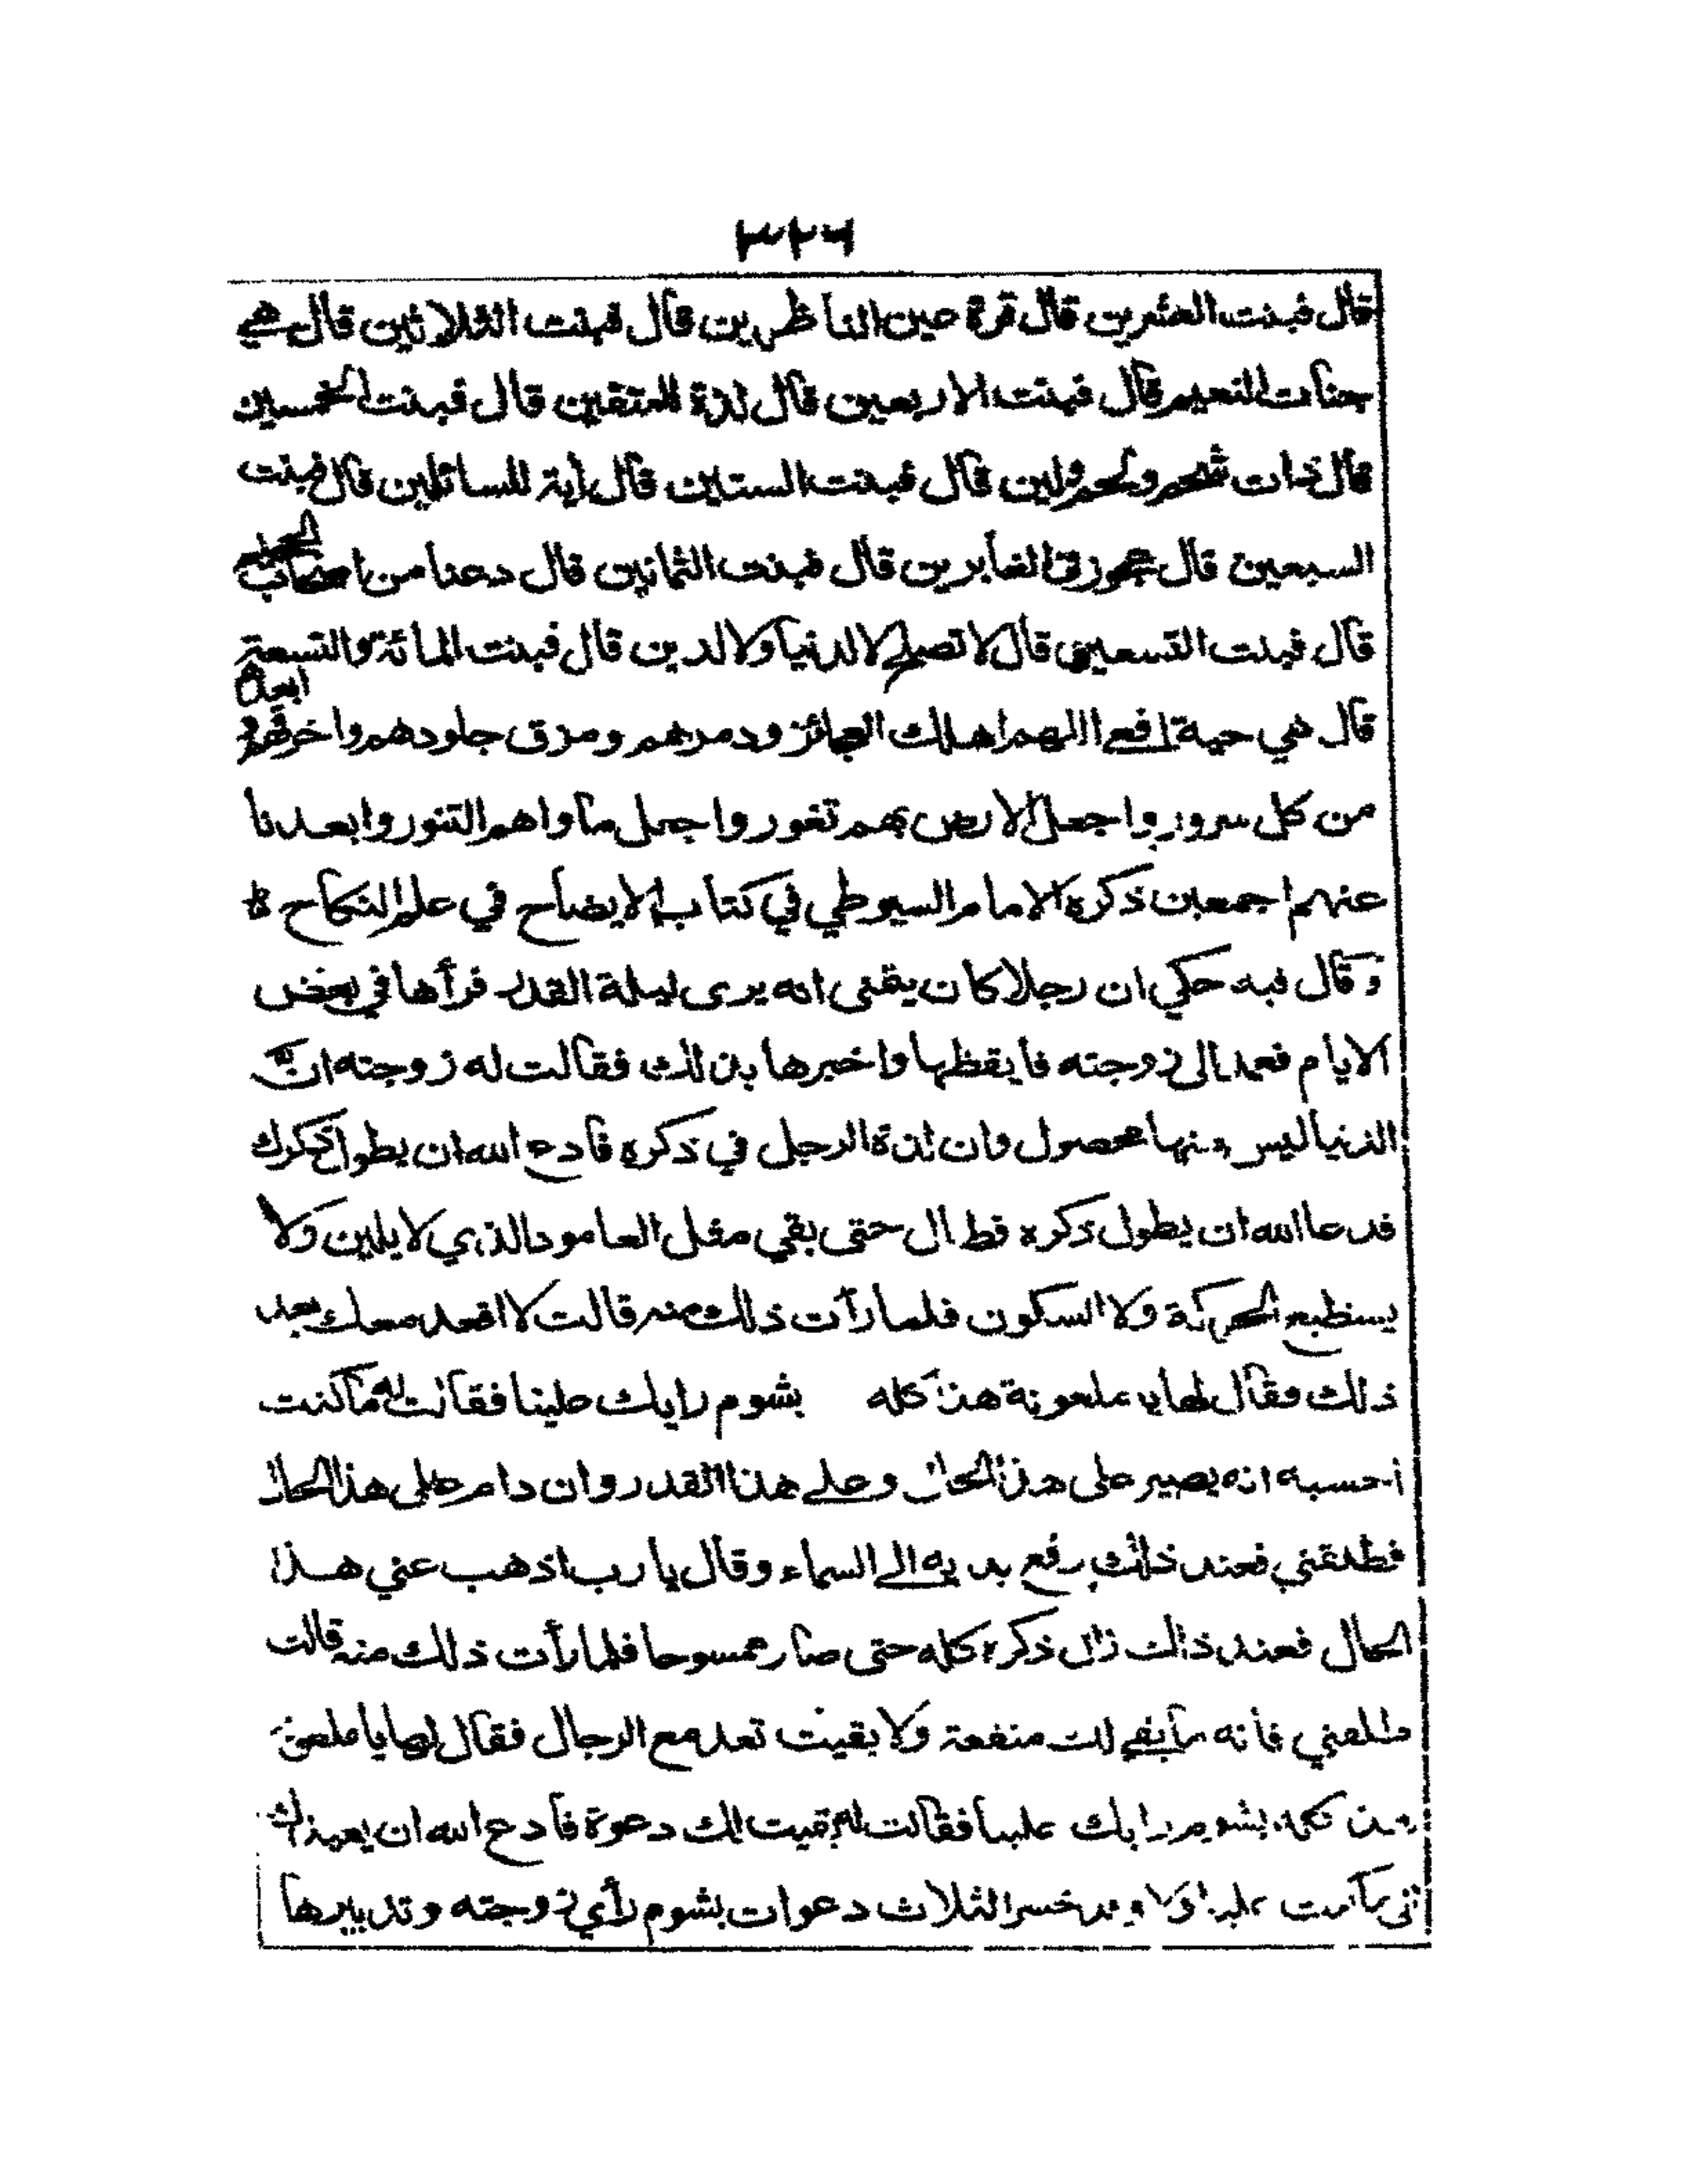 ٣٢٦
قال فبنت العشرين قال قرة عين الناظرين قال فبنت الثلاثين قال هي
جنات النعيم قال فبنت الاربعين قال لذة للمتقين قال فبنت الخمسين
قال ذات شحم ولحم ولين قال فبنت الستين قال آية للسائلين قال فبنت
السبعين قال عجوز في الغابرين قال فبنت الثمانين قال دعنا من اصحاب الجحيم
قال فبنت التسعين قال لا تصلح لا للدنيا ولا للدين قال فبنت المائة والتسعة
قال هي حية افعى اللهم اهلك العجائز ودمرهم ومزق جلودهم واخرقهم
من كل سرور واجعل الارض بهم تغور واجعل مأواهم التنور وابعدنا
عنهم اجمعين ذكره الامام السيوطي في كتاب الايضاح في علم النكاح
وقال فيه حكي ان رجلا كان يتمنى انه يرى ليلة القدر فرأها في بعض
الايام فعمد الى زوجته فايقظها واخبرها بذلك فقالت له زوجته ان
الدنيا ليس منها محصول وان لذة الرجل في ذكره فادع الله ان يطول ذكرك
فدعا الله ان يطول ذكره فطال حتى بقي مثل العامود الذي لا يلين ولا
يستطيع الحركة ولا السكون فلما رأت ذلك منه قالت لا اقعد معك بعد
ذلك فقال لها يا ملعونة هذا كله بشوم رايك علينا فقالت له ما كنت
احسبه انه يصير على هذا الحال وعلى هذا القدر وان دام على هذا الحال
فطلقني فعند ذلك رفع يديه الى السماء وقال يا رب اذهب عني هذا
الحال فعند ذلك زال ذكره كله حتى صار ممسوحا فلما رأت ذلك منه قالت
طلقني فانه ما بقي لك منفعة ولا بقيت تعد مع الرجال فقال لها يا ملعونة
هذا كله بشوم رايك علينا فقالت له بقيت لك دعوة فادع الله ان يعيذك
ما كنت عليه اولا وقد خسر الثلاث دعوات بشوم رأي زوجته وتدبيرها